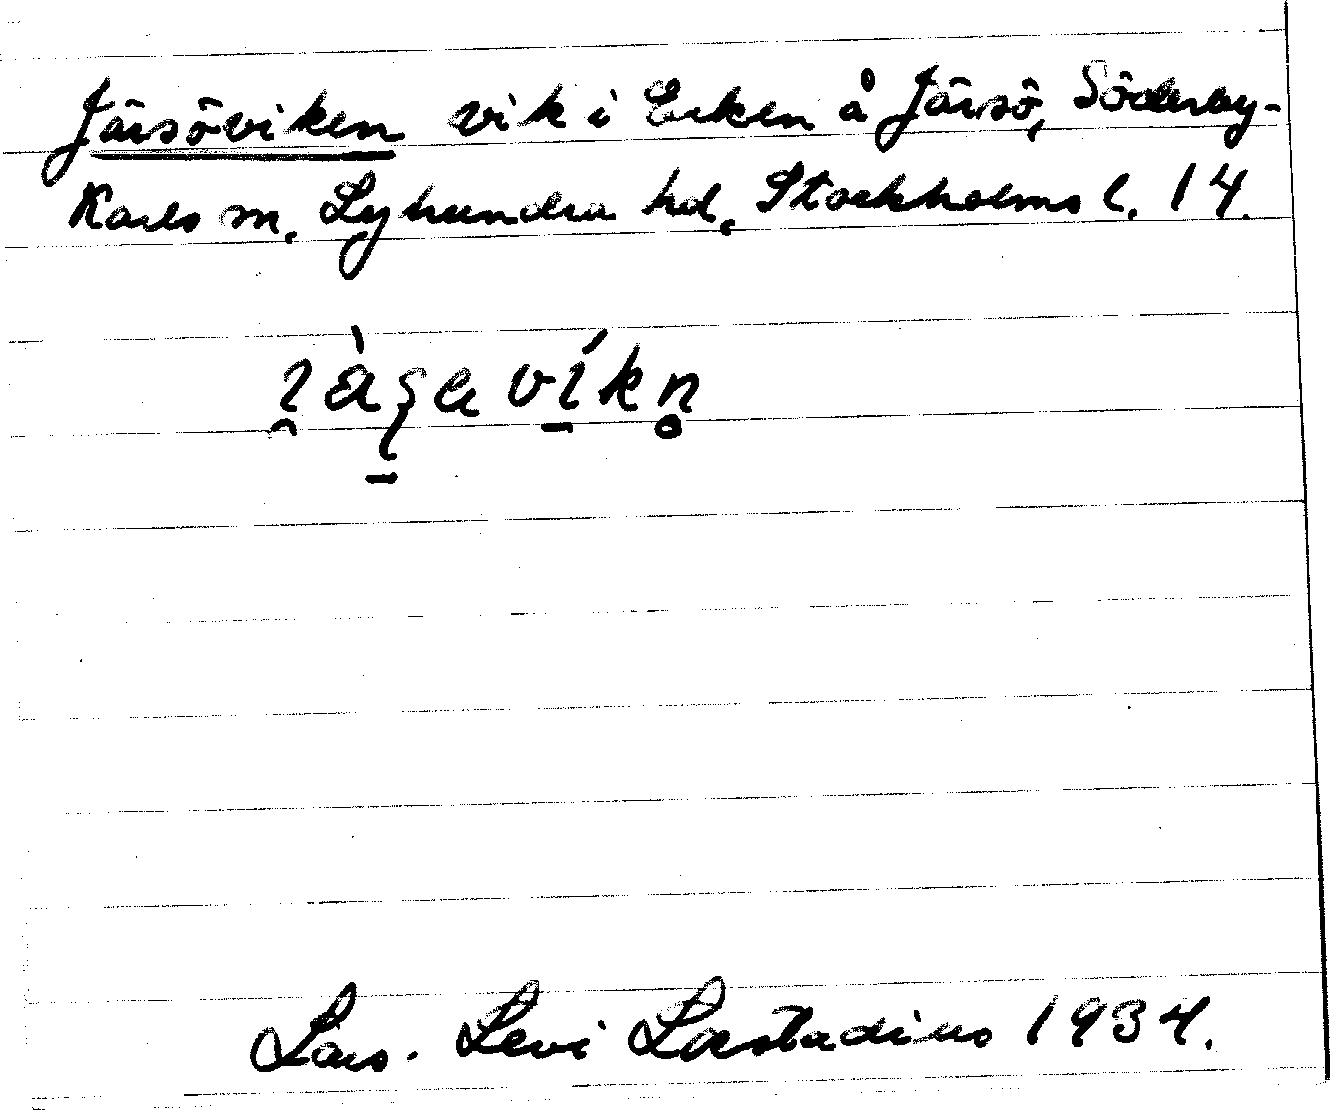 Järsöviken vik i Erken å Järsö, Söderby-
Karls sn, Lyhundra hd, Stockholms l. 14.
Lars. Levi Læstadius 1934.